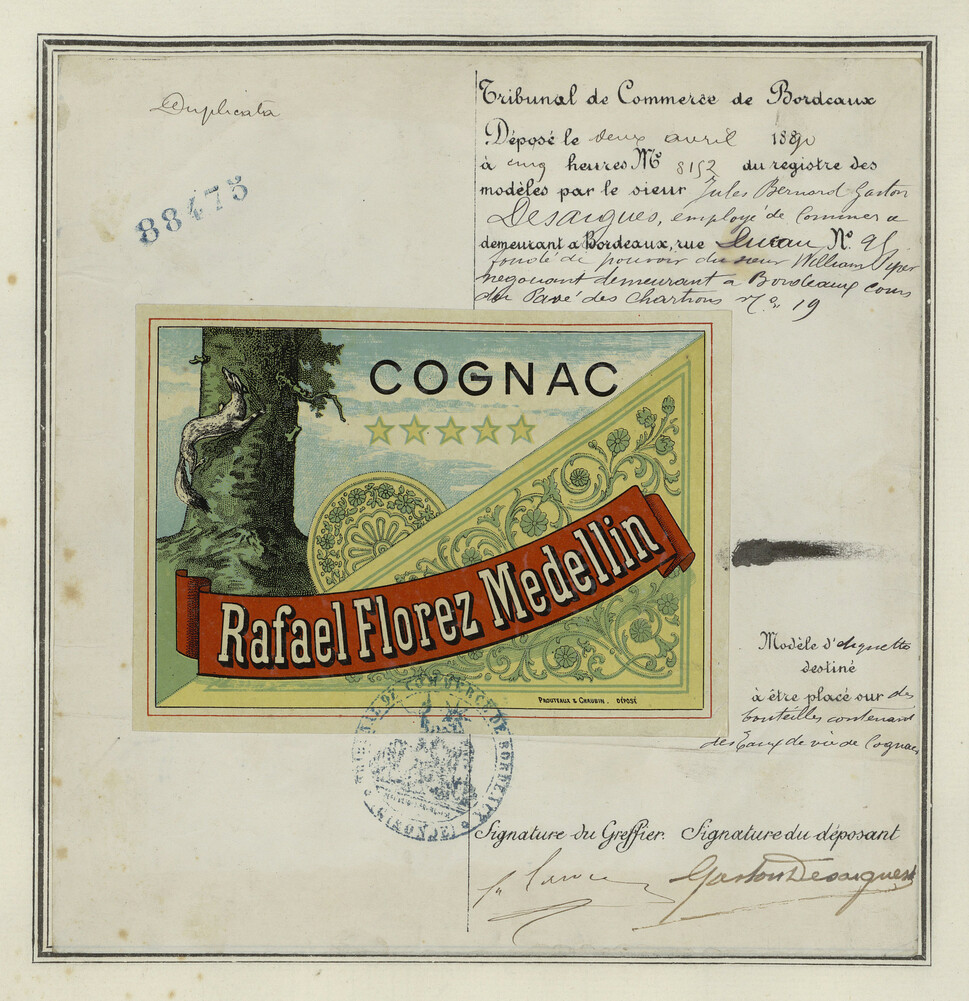 Duplicata
88475
Tribunal de Commerce de Bordeaux
Déposé le deux avril 1890
à cinq heures Nº 8152 du registre des
modèles par le sieur Jules Bernard Gaston
Desaigues, employé de Commerce
demeurant à Bordeaux, rue Nº
fondé de pouvoir du sieur William Piper
négociant demeurant à Bordeaux cours
du Pavé des Chartrons nº 19
COGNAC
Rafael Florez Medellin
PROUTEAUX & CHAUBIN. DÉPOSÉ
Modèle d'étiquette
destiné
à être placé sur des
bouteilles contenant
des Eaux de vie de Cognac
TRIBUNAL DE COMMERCE DE BORDEAUX
(GIRONDE)
Signature du Greffier. Signature du déposant
Gaston Desaigues